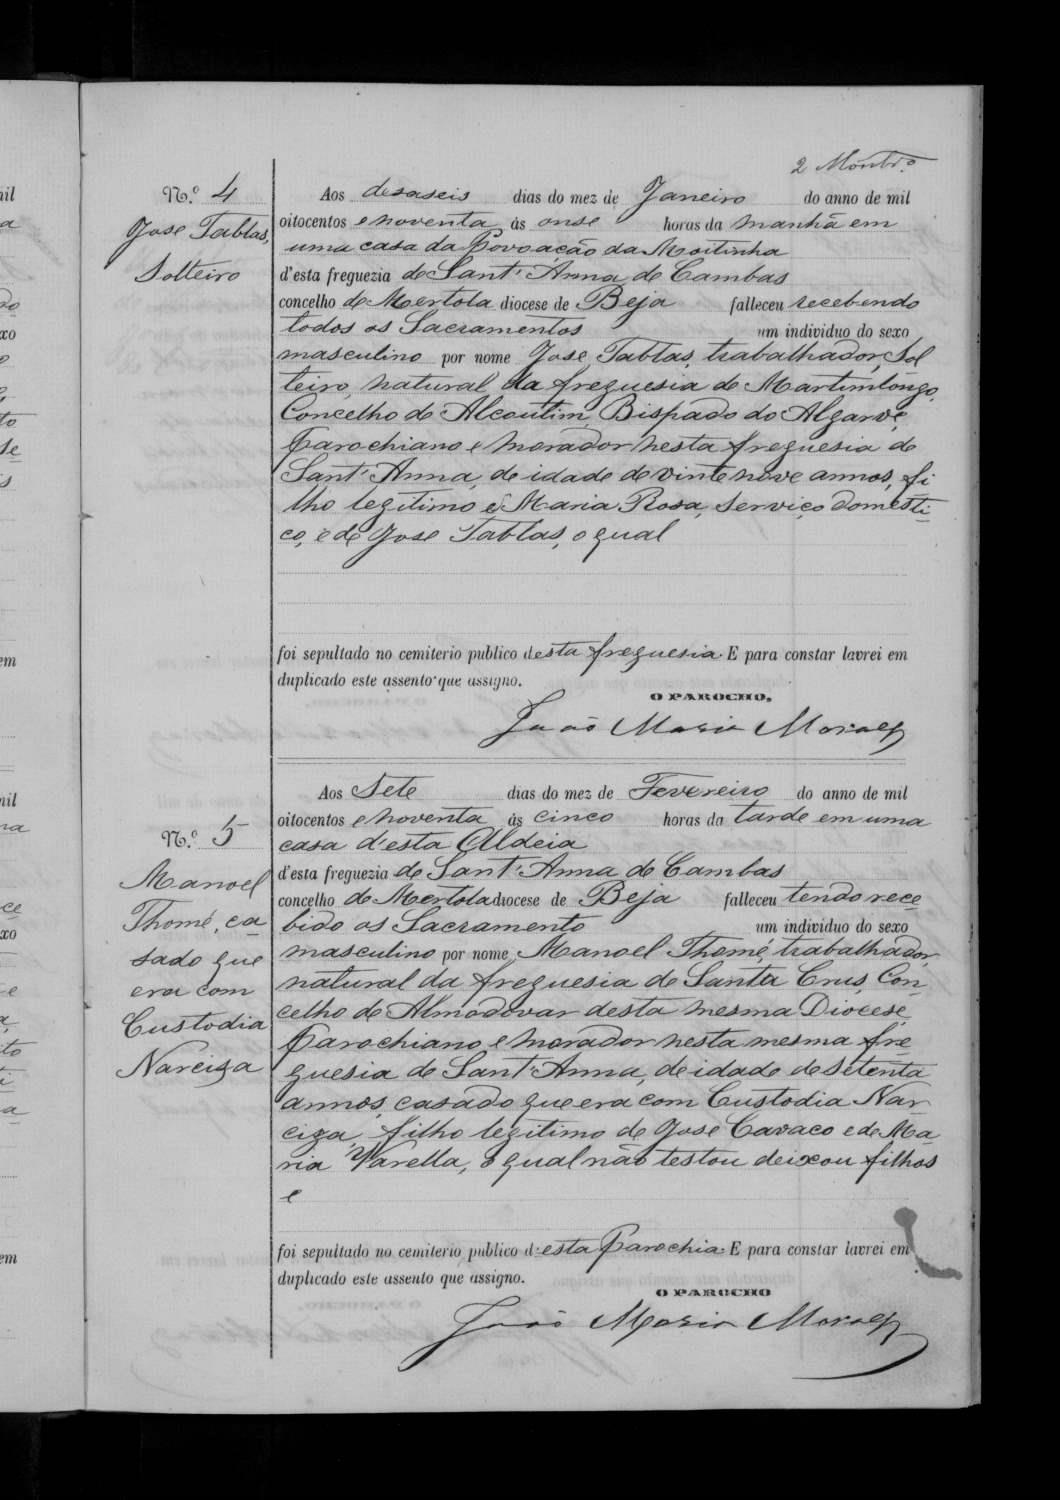 2 Montrº
N.º 4
Jose Tablas,
Solteiro
Aos desaseis dias do mez de Janeiro do anno de mil
oitocentos e noventa ás onse horas da manhã em
uma casa da Povoação da Moitinha
d'esta freguezia de Sant'Anna de Cambas
concelho de Mertola diocese de Beja falleceu recebendo
todos os Sacramentos um individuo do sexo
masculino por nome Jose Tablas, trabalhador, Sol
teiro, natural da freguesia de Martimlongo,
Concelho de Alcoutim, Bispado do Algarve,
Parochiano e morador nesta freguesia de
Sant'Anna, de idade de vinte nove annos, fi
lho legitimo de Maria Rosa, Serviço domesti-
co, e de Jose Tablas, o qual
foi sepultado no cemiterio publico desta freguesia. E para constar lavrei em
duplicado este assento que assigno.
O PAROCHO,
João Maria Moraes
N.º 5
Manoel
Thomé, ca-
sado que
era com
Custodia
Narciza
Aos Sete dias do mez de Fevereiro do anno de mil
oitocentos e noventa ás cinco horas da tarde em uma
casa d'esta Aldeia
d'esta freguezia de Sant'Anna de Cambas
concelho de Mertola diocese de Beja falleceu tendo rece-
bido os Sacramento um individuo do sexo
masculino por nome Manoel Thomé, trabalhador,
natural da freguesia de Santa Crus, Con-
celho de Almodovar desta mesma Diocese,
Parochiano e morador nesta mesma fre-
guesia de Sant'Anna, de idade de setenta
annos, casado que era com Custodia Nar-
ciza, filho legitimo de Jose Cavaco e de Ma-
ria Varella, o qual não testou deixou filhos
e
foi sepultado no cemiterio publico d'esta Parochia. E para constar lavrei em
duplicado este assento que assigno.
O PAROCHO
João Maria Moraes